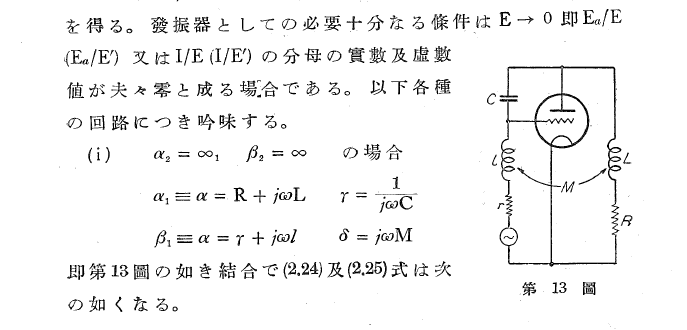 を得る。發振器としての必要十分なる條件は E → 0 即 Ea/E
(Ea/E′) 又は I/E (I/E′) の分母の實數及虛數
値が夫々零と成る場合である。以下各種
の回路につき吟味する。
(i) α₂ = ∞₁ β₂ = ∞ の場合
α₁ ≡ α = R + jωL γ = 1/jωC
β₁ ≡ α = γ + jωl δ = jωM
即第13圖の如き結合で (2.24) 及 (2.25) 式は次
の如くなる。
C
l
M
L
r
R
第 13 圖